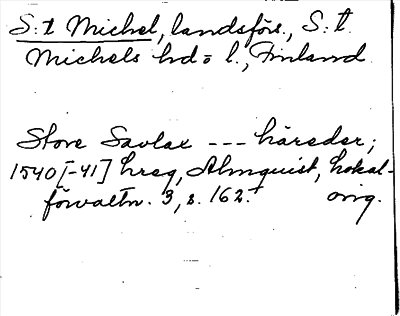 S:t Michel, landsförs., S:t
Michels hd o l., Finland
Store Savlax --- häreder;
1540[-41] hreg, Almquist, Lokal-
förvaltn. 3, s. 162. orig.